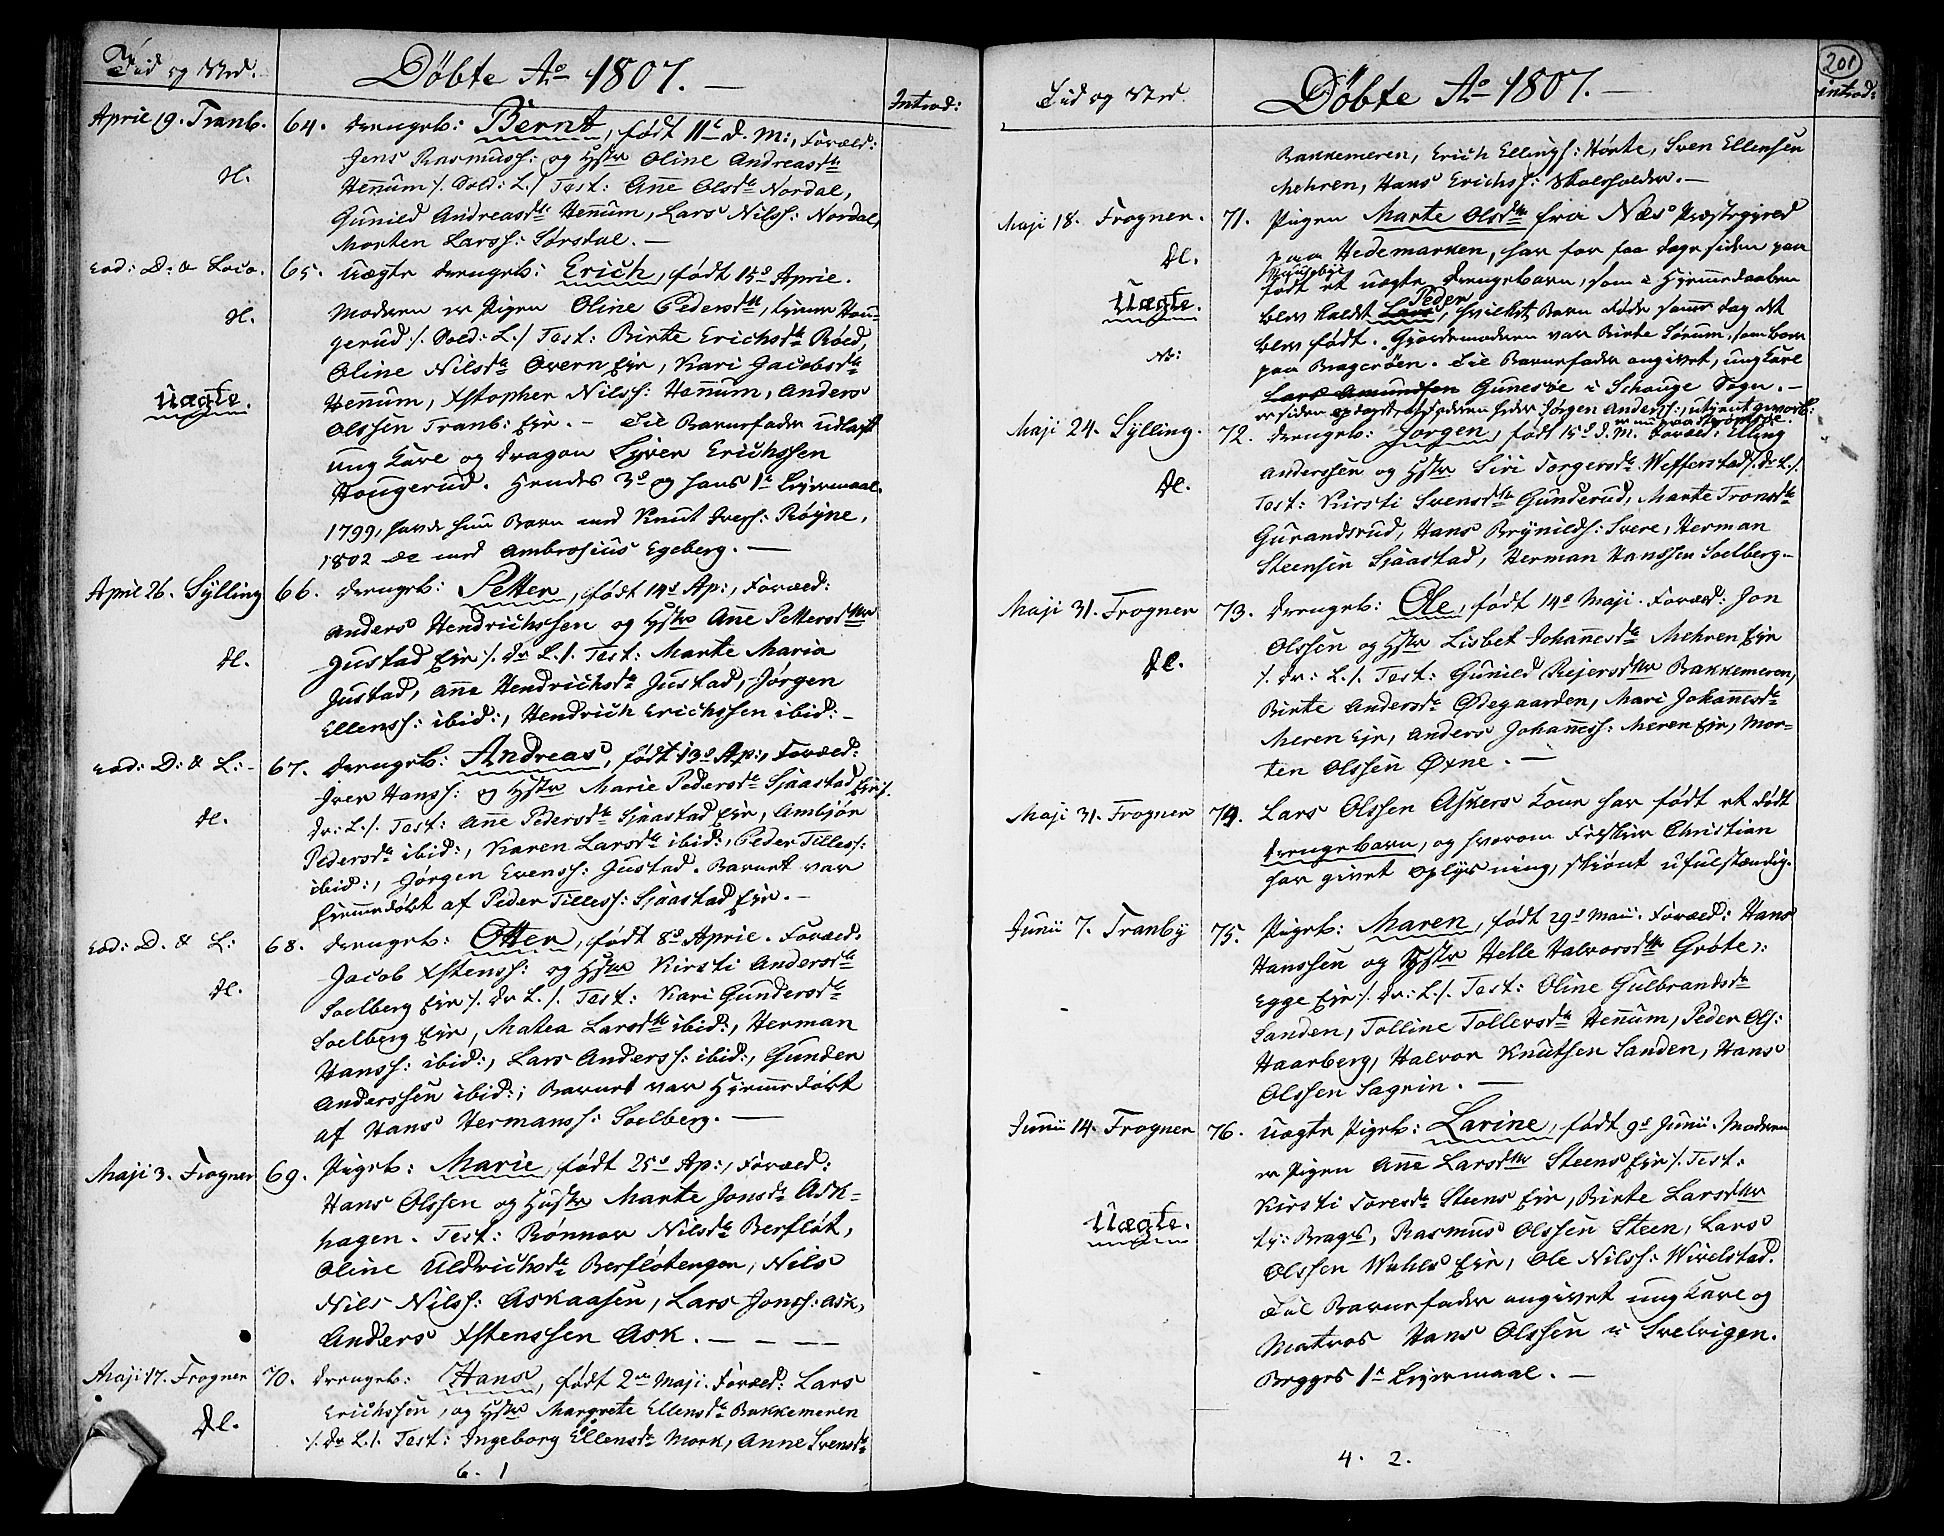 Tid og Sted.
Döbte Ao 1807. —
Introd:
April 19. Tranb.
64. Drengeb: Bernt, født 11te d. M:, Foræld:
Jens Rasmuss: og Hstr Oline Andreasdr
dl.
Hennum /. Sold: L./ Test: Anne Olsdr Nordal,
Gunild Andreasdr Hennum, Lars Nilss: Nordal,
Morten Larss: Sørsdal. —
Eod: D: & Loco.
65. Uægte drengeb: Erich, født 15de April.
dl.
Moderen er Pigen Oline Pedersdtr, tjener Hou-
gerud /. Sold: L./ Test: Birte Erichsdr Röed,
Oline Nilsdr Overn Eje, Kari Jacobsdr
Uægte.
Hennum, Xstopher Nilss: Hennum, Anders
Olssen Tranb: Eje. – Til Barnefader udlagt
ung Karl og Dragon Syver Erichssen
Hougerud. Hendes 3de og hans 1te Leiermaal.
1799, havde hun Barn med Knut Ivers: Röyne,
1802 do med Ambrosius Egeberg. —
April 26. Sylling
66. Drengeb: Petter, født 14de Ap:, Foræld:
Anders Hendrichssen og Hstr Anne Pettersdtr
dl.
Justad Eje /. Dr L./. Test: Marte Maria
Justad, Anne Hendrichsdr Justad, Jörgen
Ellenss: ibid:, Hendrich Erichssen ibid: –
Eod: D: & L: –
67. Drengeb: Andreas, født 13de Ap:, Foræld:
Iver Hanss: og Hstr Marie Pedersdr Sjaastad Eje /.
dl.
Dr: L./. Test: Anne Pedersdr Sjaastad Eje, Ambjör
Pedersdr ibid:, Karen Larsdr ibid:, Peder Tilless:
ibid:, Jörgen Evenss: Justad. Barnet var
hjemmedöbt af Peder Tilless: Sjaastad Eje. –
Eod: D. & L:
68. Drengeb: Otter, født 8de April. Foræld:
Jacob Xstenss: og Hstr Kirsti Andersdr
dl.
Solberg Eje /. Dr L./. Test: Kari Gundersdr
Solberg Eje, Mathea Larsdtr ibid:, Herman
Hanss: ibid:, Lars Anderss: ibid:, Gunder
Anderssen ibid:; Barnet var hjemmedöbt
af Hans Hermanss: Solberg. —
Maji 3. Frogner
69. Pigeb: Marie, født 25de Ap:, Foræld:
Hans Olssen og Hustr Marte Jonsdr Ask-
hagen. Test: Rönnov Nilsdr Berflöt,
Oline Uldrichsdr Berflötengen, Nils
Nils Nilss: Askaasen, Lars Jonss: Ask,
Anders Xstenssen Ask. — — —
Maji 17. Frogner
70. Drengeb: Hans, født 2den Maji. Foræld: Lars
Erichssen, og Hstr Margrete Ellensdr Bakkemeren
dl.
/. Dr L./. Test: Ingeborg Ellensdr Mork, Anne Svensdr
6. 1
201
Tid og Sted.
Döbte Ao 1807. —
introd:
Bakkemeren, Erich Ellings: Hörte, Sven Ellensen
Mehren, Hans Erichss: Skoleholder. —
Maji 18. Frogner.
71. Pigen Marte Olsdtr fra Næs Præstegield
dl.
paa Hedemarken, har for faa dage siden paa
født et uægte drengebarn, som i hjemmedaaben
Uægte.
Peder
blev kaldt Lars, hvilket Barn døde samme dag det
blev født. Gjordemoderen var Birte Sörum, som boer
No:
paa Brageröen. Til Barnefader angivet, ung Karl
Lars Amundsen Gunesöe i Schauge Sogn. –
er siden opdaget, at Faderen heder Jörgen Anderss:,
Maji 24. Sylling.
72. Drengeb: Jorgen, født 15de d. M. Foræld: Elling
Anderssen og Hstr Siri Torgersdr Wefferstad /. Dr L./.
dl.
Test: Kirsti Svensdtr Gunderud, Marte Tronsdr
Gurandsrud, Hans Brynilds: Svere, Herman
Steensen Sjaastad, Herman Hanssen Solberg –
Maji 31. Frogner
73. Drengeb: Ole, født 14de Maji. Foræld: Jon
Olssen og Hstr Lisbet Johannesdr Mehren Eje
dl.
/. Dr: L./. Test: Gunild Rejersdtr Bakkemeren,
Birte Andersdr Ødegaarden, Mari Johannesdr
Meren Eje, Anders Johanness: Meren Eje, Mor-
ten Olssen Oxne. —
Maji 31. Frogner
74. Lars Olssen Askers Kone har født et dødt
drengebarn, og hvorom Christian
har givet oplysning, skiönt ufulstændig.
Junii 7. Tranby
75. Pigeb: Maren, født 29de Maii. Foræld: Hans
Hanssen og Hstr Helle Halvorsdtr Gröte ɔ:
Egge Eje /. Dr: L./. Test: Oline Gulbrandsdr
Sanden, Tolline Tollersdr Hennum, Peder Ols:
Haarberg, Halvor Knutsen Sanden, Hans
Olssen Sagrin. —
Junii 14. Frogner
76. Uægte Pigeb: Larine, født 9de Junii. Moderen
er Pigen Anne Larsdtr Steens Eje /. Test:
Kirsti Toresdr Steens Eje, Birte Larsdtr
Uægte.
ty: Brags, Rasmus Olssen Steen, Lars
Olssen Wahls Eje, Ole Nilss: Wivelstad.
Til Barnefader angivet ung Karl og
Matros Hans Olssen i Svelvigen.
Begges 1te Leiermaal. —
4. 2.